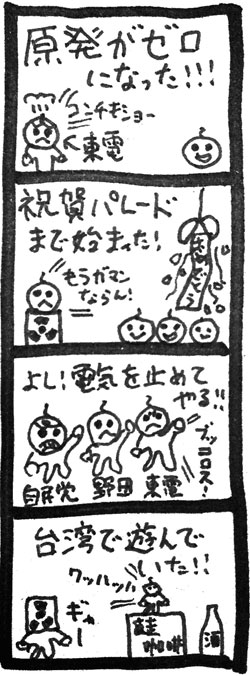 原発がゼロ
になった!!!
コンチキショー
東電
祝賀パレード
まで始まった!
おめでとう
もうガマン
ならん!
よし!電気を止めて
やる!!
ブッコロス!
自民党 野田 東電
台湾で遊んで
いた!!
ワッハッハ
ギャー
珈琲
酒